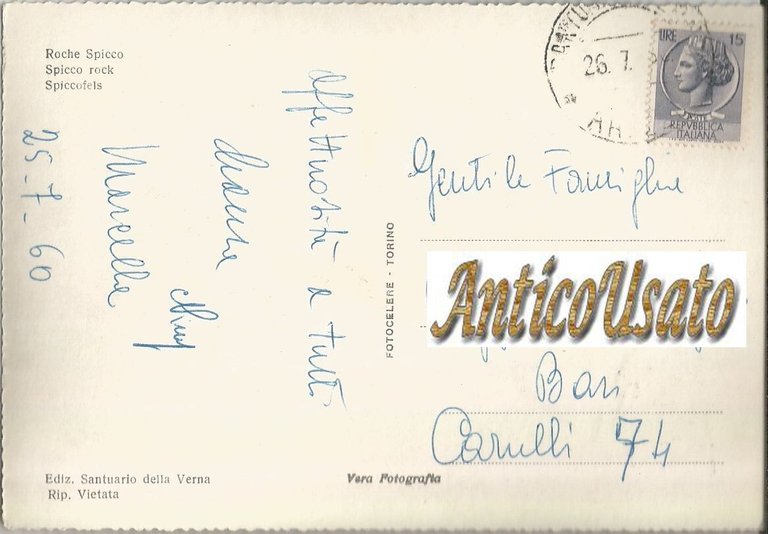 Roche Spicco
Spicco rock
Spiccofels
25-7-60
Marcella
affettuosità a tutti
FOTOCELERE - TORINO
Ediz. Santuario della Verna
Rip. Vietata
Vera Fotografia
26.7.
LIRE 15
REPVBBLICA
ITALIANA
Gentile Famiglia
AnticoUsato
Bari
Carulli 74